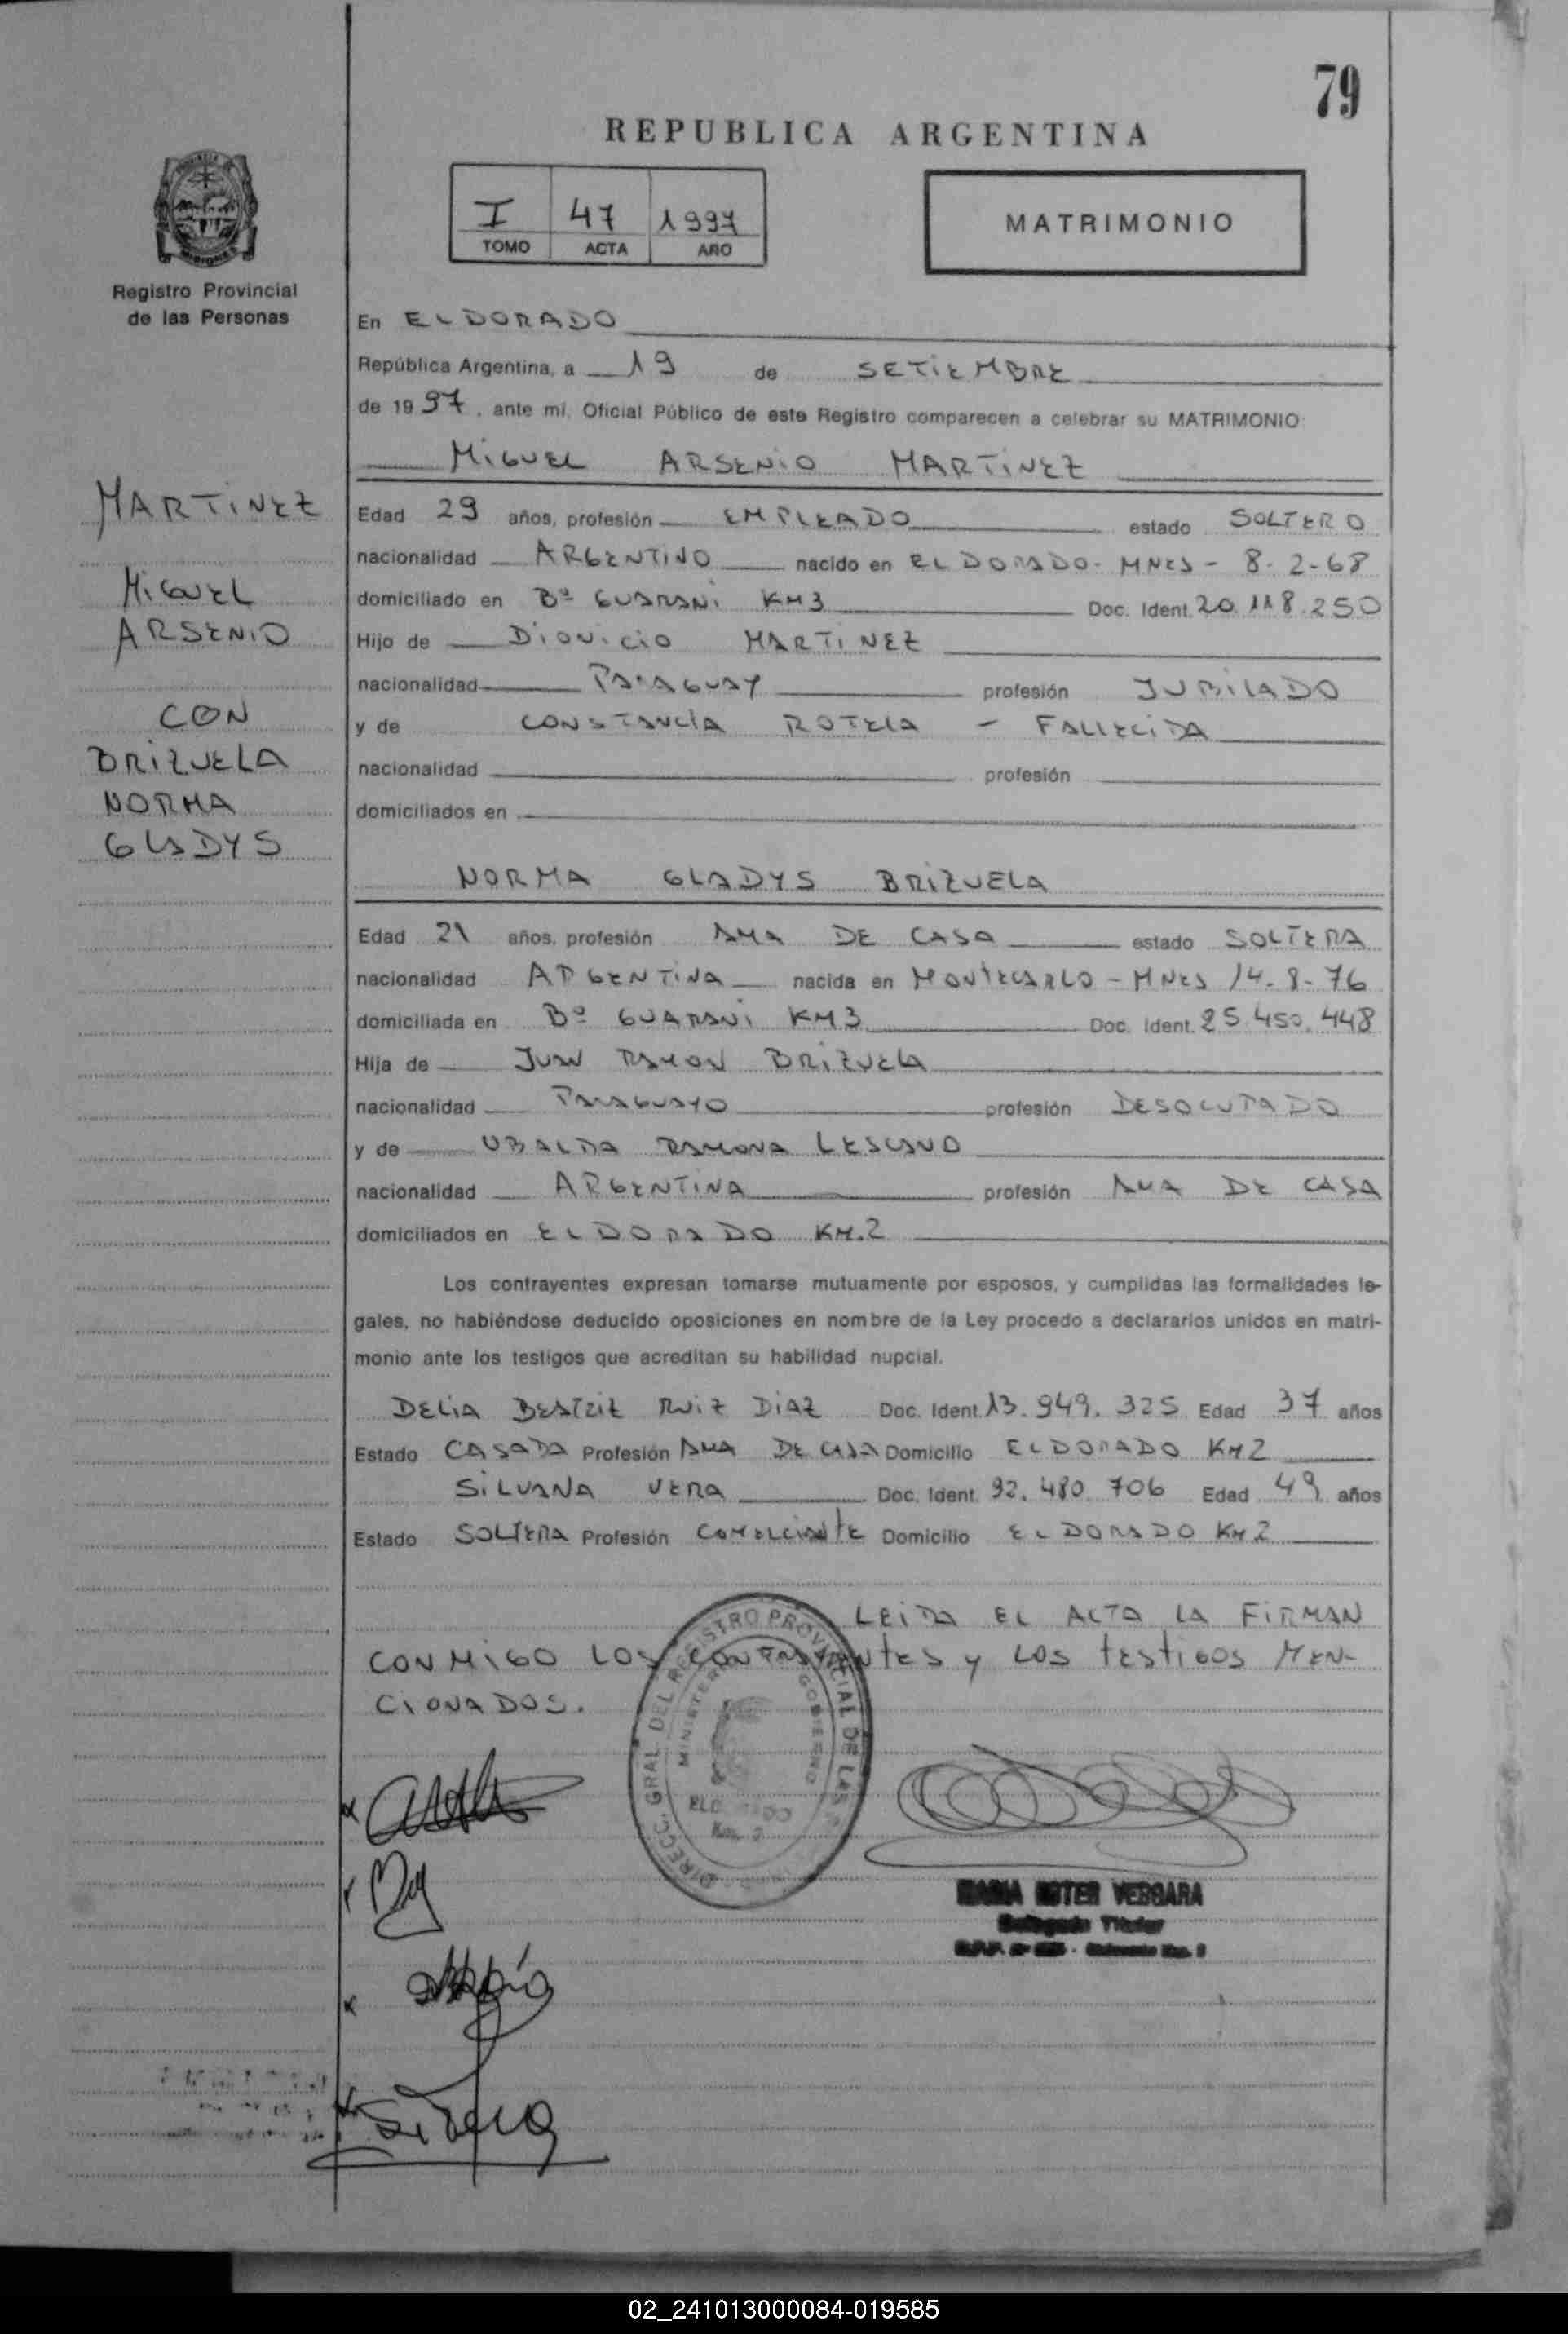 79
REPUBLICA ARGENTINA
I 47 1997
TOMO ACTA AÑO
MATRIMONIO
Registro Provincial
de las Personas
En ELDORADO
República Argentina, a 19 de SETIEMBRE
de 1997, ante mí, Oficial Público de este Registro comparecen a celebrar su MATRIMONIO:
MIGUEL ARSENIO MARTINEZ
MARTINEZ
MIGUEL
ARSENIO
CON
BRIZUELA
NORMA
GLADYS
Edad 29 años, profesión EMPLEADO estado SOLTERO
nacionalidad ARGENTINO nacido en ELDORADO - MNES - 8-2-68
domiciliado en Bº GUARANI KM3 Doc. Ident. 20.118.250
Hijo de DIONICIO MARTINEZ
nacionalidad PARAGUAY profesión JUBILADO
y de CONSTANCIA ROTELA - FALLECIDA
nacionalidad profesión
domiciliados en
NORMA GLADYS BRIZUELA
Edad 21 años, profesión AMA DE CASA estado SOLTERA
nacionalidad ARGENTINA nacida en MONTECARLO - MNES 14-8-76
domiciliada en Bº GUARANI KM3 Doc. Ident. 25.450.448
Hija de JUAN RAMON BRIZUELA
nacionalidad PARAGUAYO profesión DESOCUPADO
y de UBALDA RAMONA LESCANO
nacionalidad ARGENTINA profesión AMA DE CASA
domiciliados en ELDORADO KM.2
Los contrayentes expresan tomarse mutuamente por esposos, y cumplidas las formalidades le-
gales, no habiéndose deducido oposiciones en nombre de la Ley procedo a declararlos unidos en matri-
monio ante los testigos que acreditan su habilidad nupcial.
DELIA BEATRIZ RUIZ DIAZ Doc. Ident. 13.949.325 Edad 37 años
Estado CASADA Profesión AMA DE CASA Domicilio ELDORADO KM2
SILVANA VERA Doc. Ident. 92.480.706 Edad 49 años
Estado SOLTERA Profesión COMERCIANTE Domicilio ELDORADO KM2
LEIDA EL ACTA LA FIRMAN
CONMIGO LOS CONTRAYENTES y LOS TESTIGOS MEN-
CIONADOS.
DIRECC. GRAL. DEL REGISTRO PROVINCIAL DE LAS
MINISTERIO GOBIERNO
ELDORADO
Km. 2
VERGARA
Titular
02_241013000084-019585